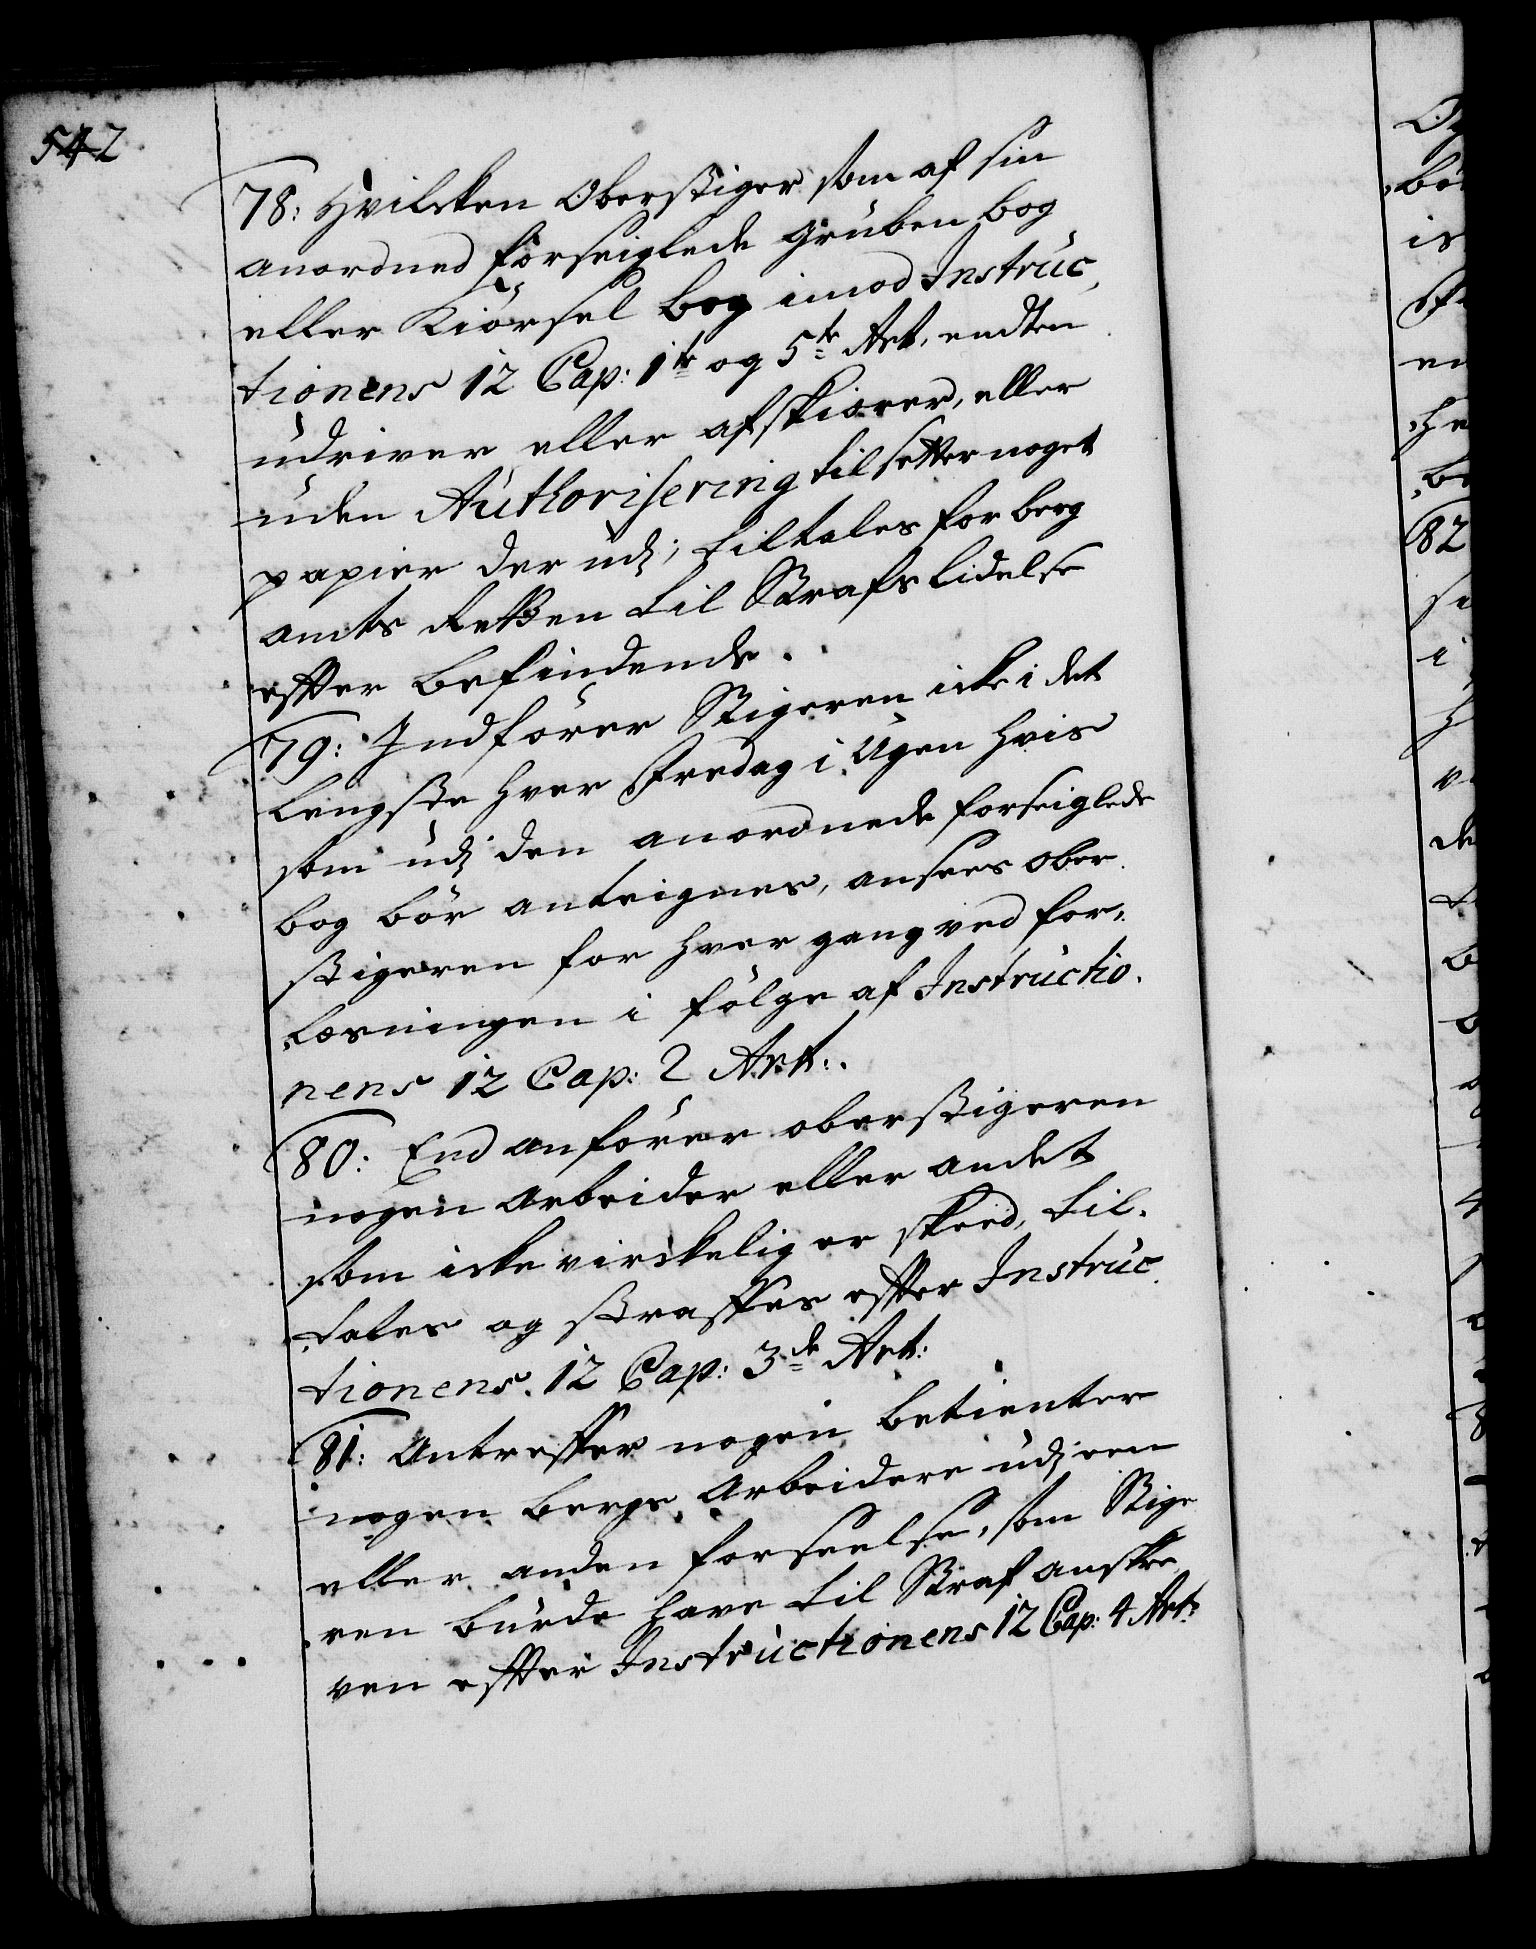 542
78: Hvilcken Oberstiger som af sin
anordned forseiglede Gruben bog
eller Kiörsel bog imod Instruc,
tionens 12 Cap: 1te og 5te Art. endten
udriver eller afskiærer, eller
uden Authorisering tilsetter noget
papier der udj, tiltales for berg
amts Retten til Strafs lidelse
effter befindende.
79: Indfører Stigeren icke i det
lengste hver Fredag i Ugen hvis
som udj den anordnede forseiglede
bog bör anteignes, ansees ober
stigeren for hver gang ved for,
læsningen i fölge af Instructio.
nens 12 Cap: 2 Art:.
80: End anförer oberstigeren
nogen Arbeider eller andet
som icke virckelig er skeed, til.
tales og straffes effter Instruc
tionens. 12 Cap: 3de Art:
81: Antreffer nogen betienter
nogen bergs Arbeidere udj een
eller anden forseelse, som Stige
ren burde have til Straf anskre
ven effter Instructionens 12 Cap: 4 Art:
82